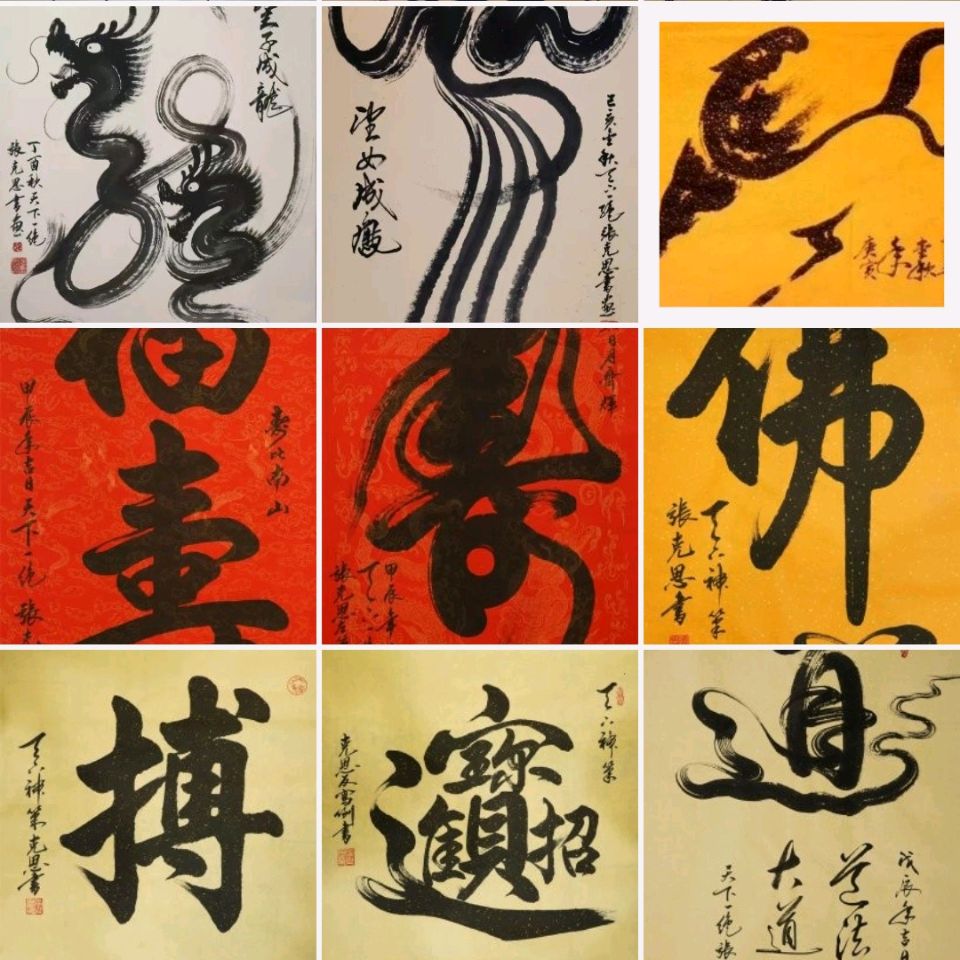 望子成龍
丁酉秋天下一絕
張克思書畫
己亥金秋天下一絕張克思書畫
望女成鳳
庚寅年金秋
壽比南山
甲辰年吉日天下一絕張克
日月齊輝
壽
甲辰年
張克思
佛
天下神筆
張克思書
搏
天下神筆克思書
天下神筆
招財進寶
克思反寫倒書
道
戊辰年吉日
道法
大道
天下一絕張